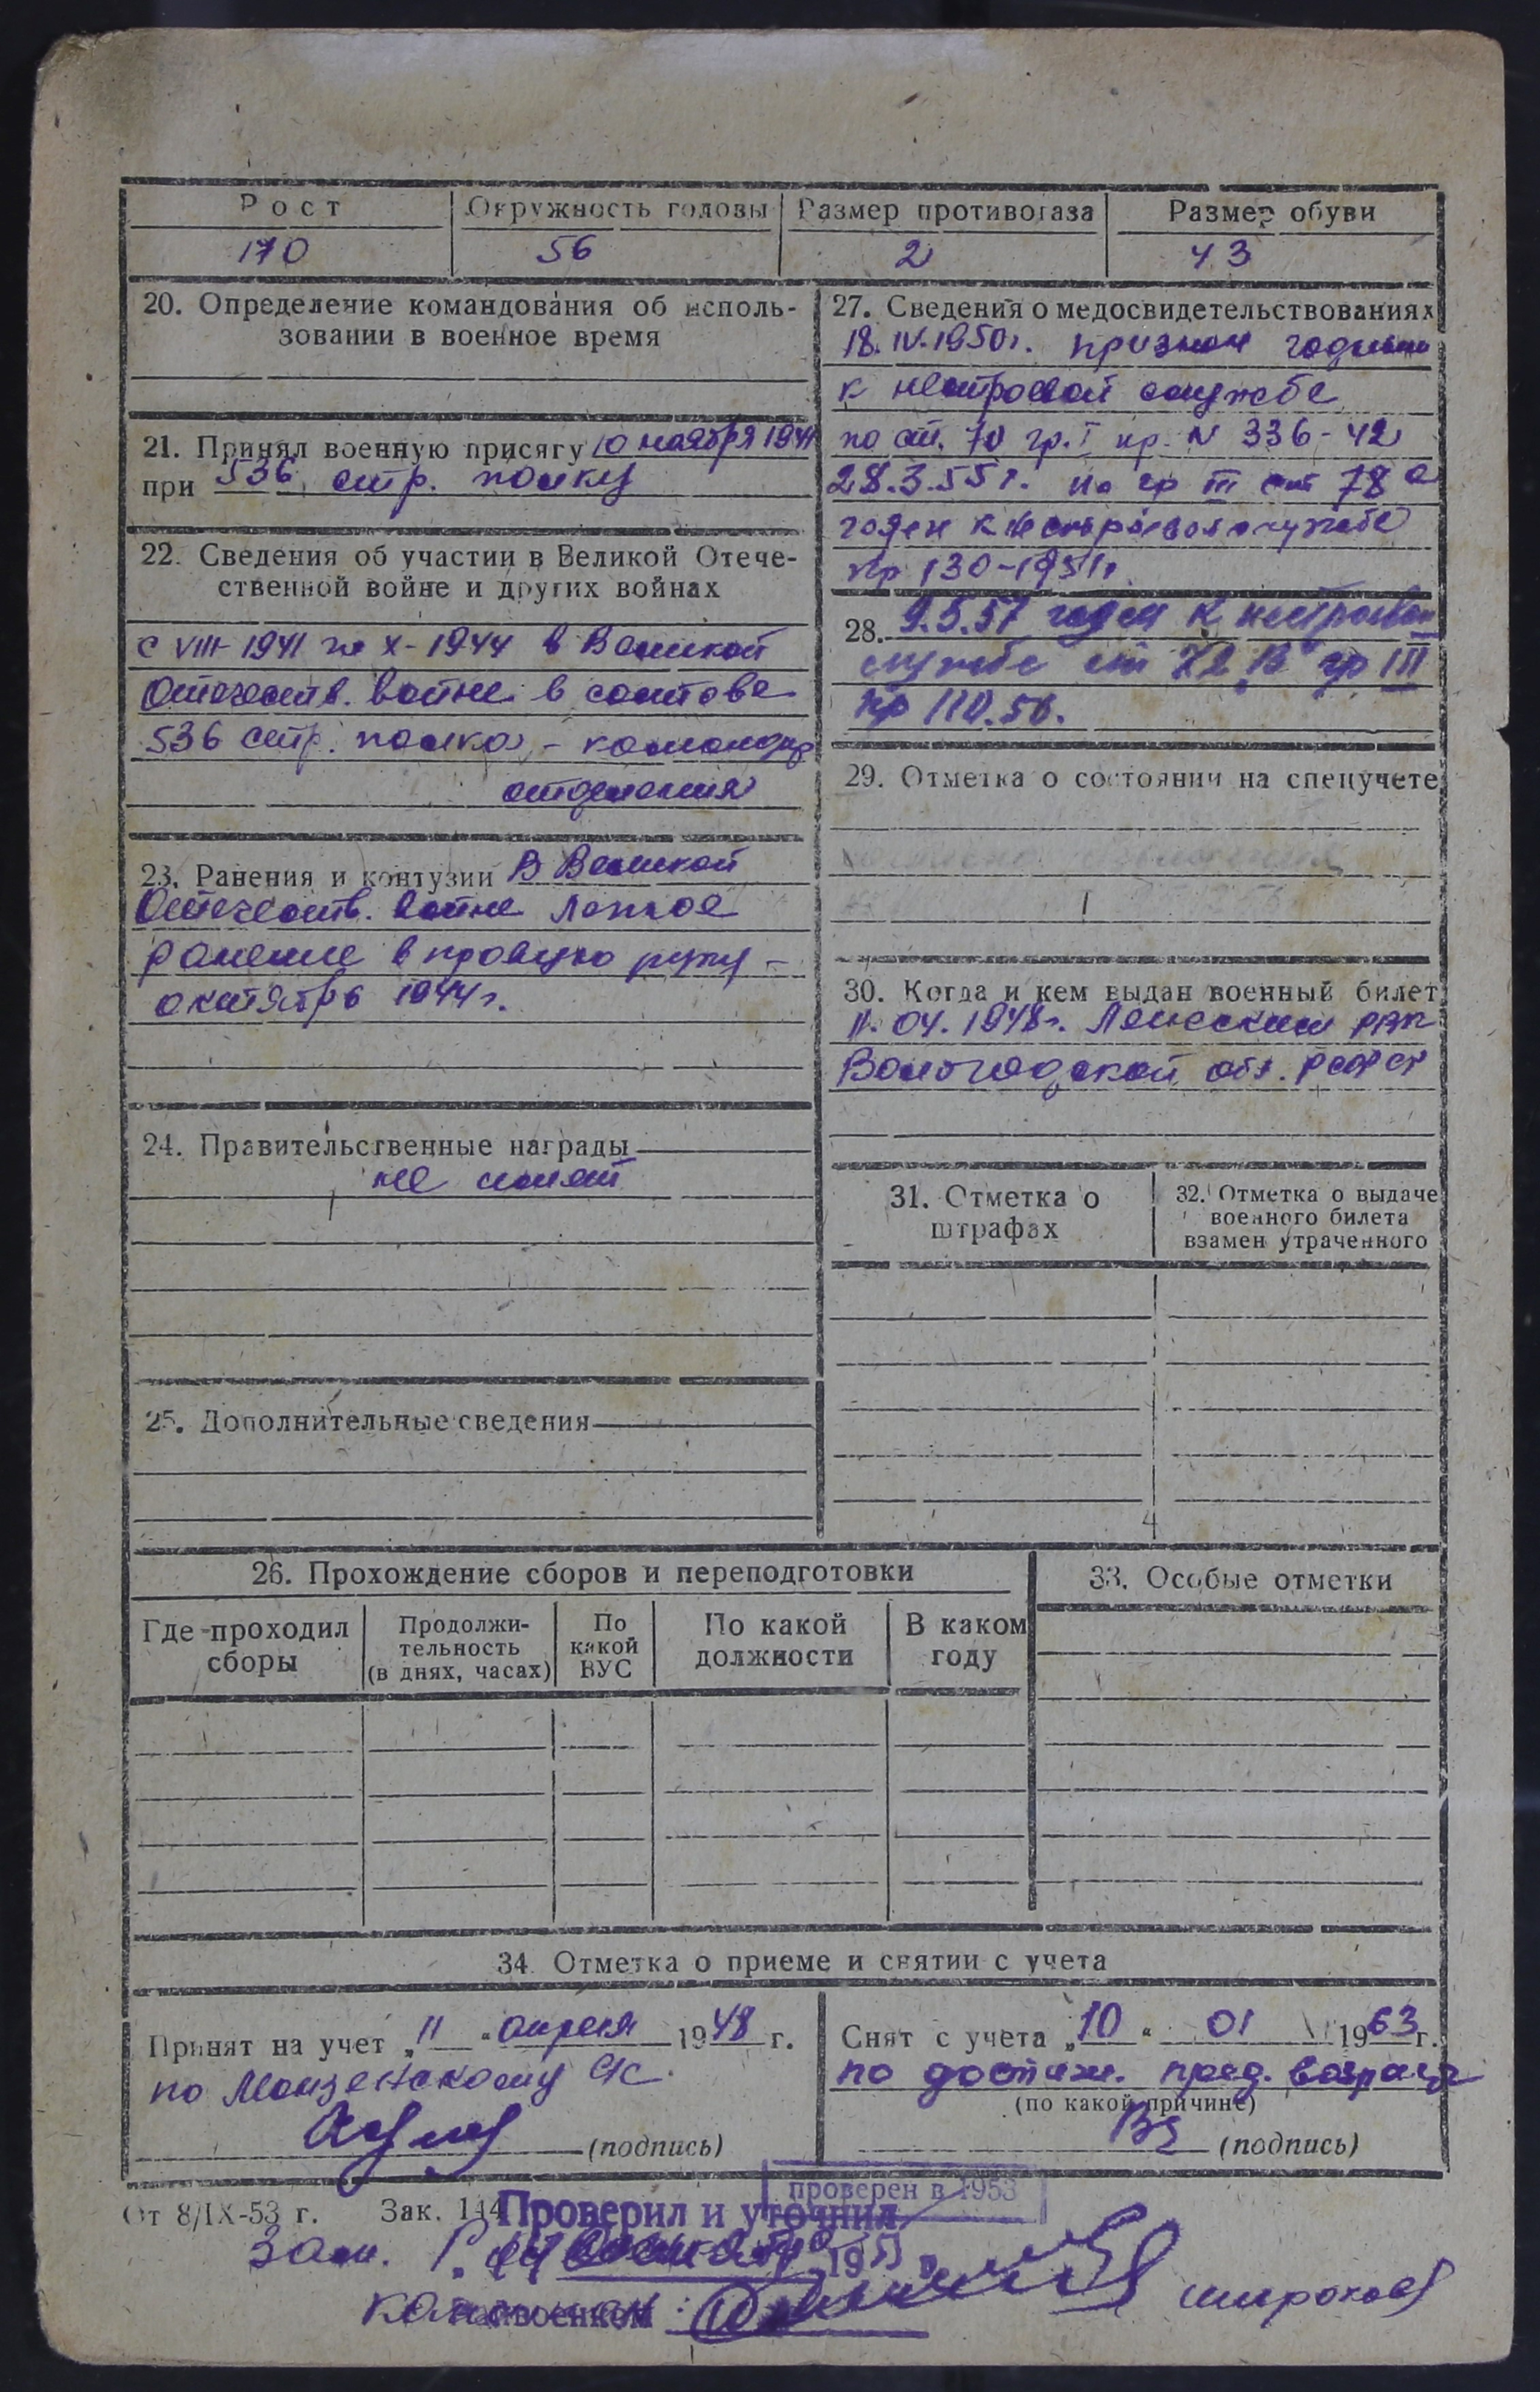 Рост Окружность головы Размер противогаза Размер обуви
170 56 2 43
20. Определение командования об исполь-
зовании в военное время
21. Принял военную присягу 10 ноября 1941
при 536 стр. полку
22. Сведения об участии в Великой Отече-
ственной войне и других войнах
с VIII-1941 по X-1944 в Великой
Отечеств. войне в составе
536 стр. полка - командир
отделения
23. Ранения и контузии В Великой
Отечеств. войне легкое
ранение в правую руку -
октябрь 1944 г.
24. Правительственные награды
не имеет
25. Дополнительные сведения
27. Сведения о медосвидетельствованиях
18.IV.1950г. признан годным
к нестроевой службе
по ст. 70 гр. I пр. N 336-42
28.3.55 г. по гр III ст 78 а
годен к нестроевой службе
пр 130-1951г
28. 9.5.57 годен к нестроевой
службе ст 72 "В" гр III
пр 110.56.
29. Отметка о состоянии на спецучете
30. Когда и кем выдан военный билет
11.04.1948г. РВК
Вологодской обл. РСФСР
31. Отметка о
штрафах
32. Отметка о выдаче
военного билета
взамен утраченного
26. Прохождение сборов и переподготовки
Где проходил
сборы
Продолжи-
тельность
(в днях, часах)
По
какой
ВУС
По какой
должности
В каком
году
33. Особые отметки
34. Отметка о приеме и снятии с учета
Принят на учет „11" апреля 1948 г.
по
(подпись)
Снят с учета „10" 01 1963 г.
по достиж. пред. возраста
(по какой причине)
(подпись)
От 8/IX-53 г. Зак. 144
проверен в 1953
Проверил и уточнил
Зам.
195
Широков